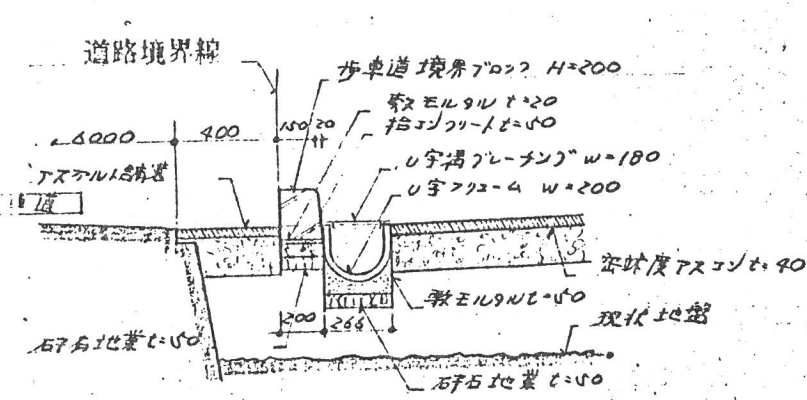 道路境界線
歩車道境界ブロック H=200
敷モルタル t=20
捨コンクリート t=50
6000
400
150
20
U字溝グレーチング W=180
アスファルト舗装
U字フリューム W=200
道
密粒度アスコン t=40
敷モルタル t=50
200
266
現状地盤
砕石地業 t=50
砕石地業 t=50